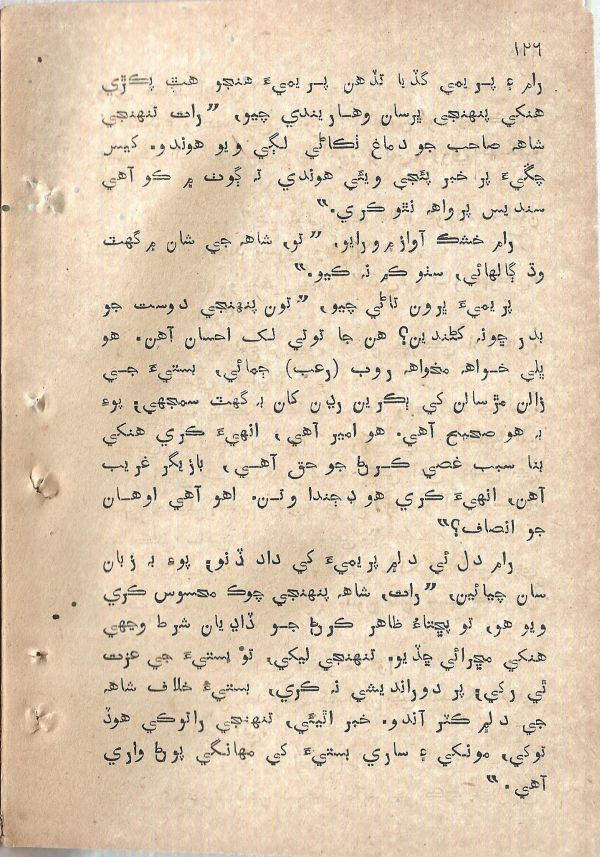 ١٢٦
رام ۽ پريمي گڏيا تڏهن پريميءَ هنجو هٿ پڪڙي
هنکي پنهنجي ڀرسان وهاريندي چيو، ”رات تنهنجي
شاهہ صاحب جو دماغ ٺڪاڻي لڳي ويو هوندو. ڪيس
چڱيءَ پر خبر پئجي ويئي هوندي تہ ڳوٺ ۾ ڪو آهي
سنديس پرواهہ نٿو ڪري.“
رام خشڪ آواز ۾ ورايو، ”تو، شاهہ جي شان ۾ گهٽ
وڌ ڳالهائي، سٺو ڪم نہ ڪيو.“
پريميءَ ڀرون تاڻي چيو، ”تون پنهنجي دوست جو
پدر ڇونہ کڻندين؟ هن جا توتي لک احسان آهن. هو
ڀلي خواهہ مخواهہ روب (رعب) ڄمائي، بستيءَ جي
زالن مڙسالن کي ٻڪرين رڍن کان بہ گهٽ سمجهي؛ پوءِ
بہ هو صحيح آهي. هو امير آهي، انهيءَ ڪري هنکي
بنا سبب غصي ڪرڻ جو حق آهي، بازيگر غريب
آهن، انهيءَ ڪري هو ڊڄندا وتن. اهو آهي اوهان
جو انصاف؟“
رام دل ئي دل۾ پريميءَ کي داد ڏنو؛ پوءِ بہ زبان
سان چيائين، ”رات، شاهہ پنهنجي چوڪ محسوس ڪري
ويو هو، تو پڇتاءُ ظاهر ڪرڻ جو ڏاڍيان شرط وجهي
هنکي مڇرائي ڇڏيو. تنهنجي ليکي، توْ بستيءَ جي عزت
ٿي رکي؛ پر دورانديشي نہ ڪري، بستيءَ خلاف شاهہ
جي دل۾ ڪٽر آندو. خبر اٿيئي، تنهنجي راتوڪي هوڏ
توکي، مونکي ۽ ساري بستيءَ کي مهانگي پوڻ واري
آهي.“